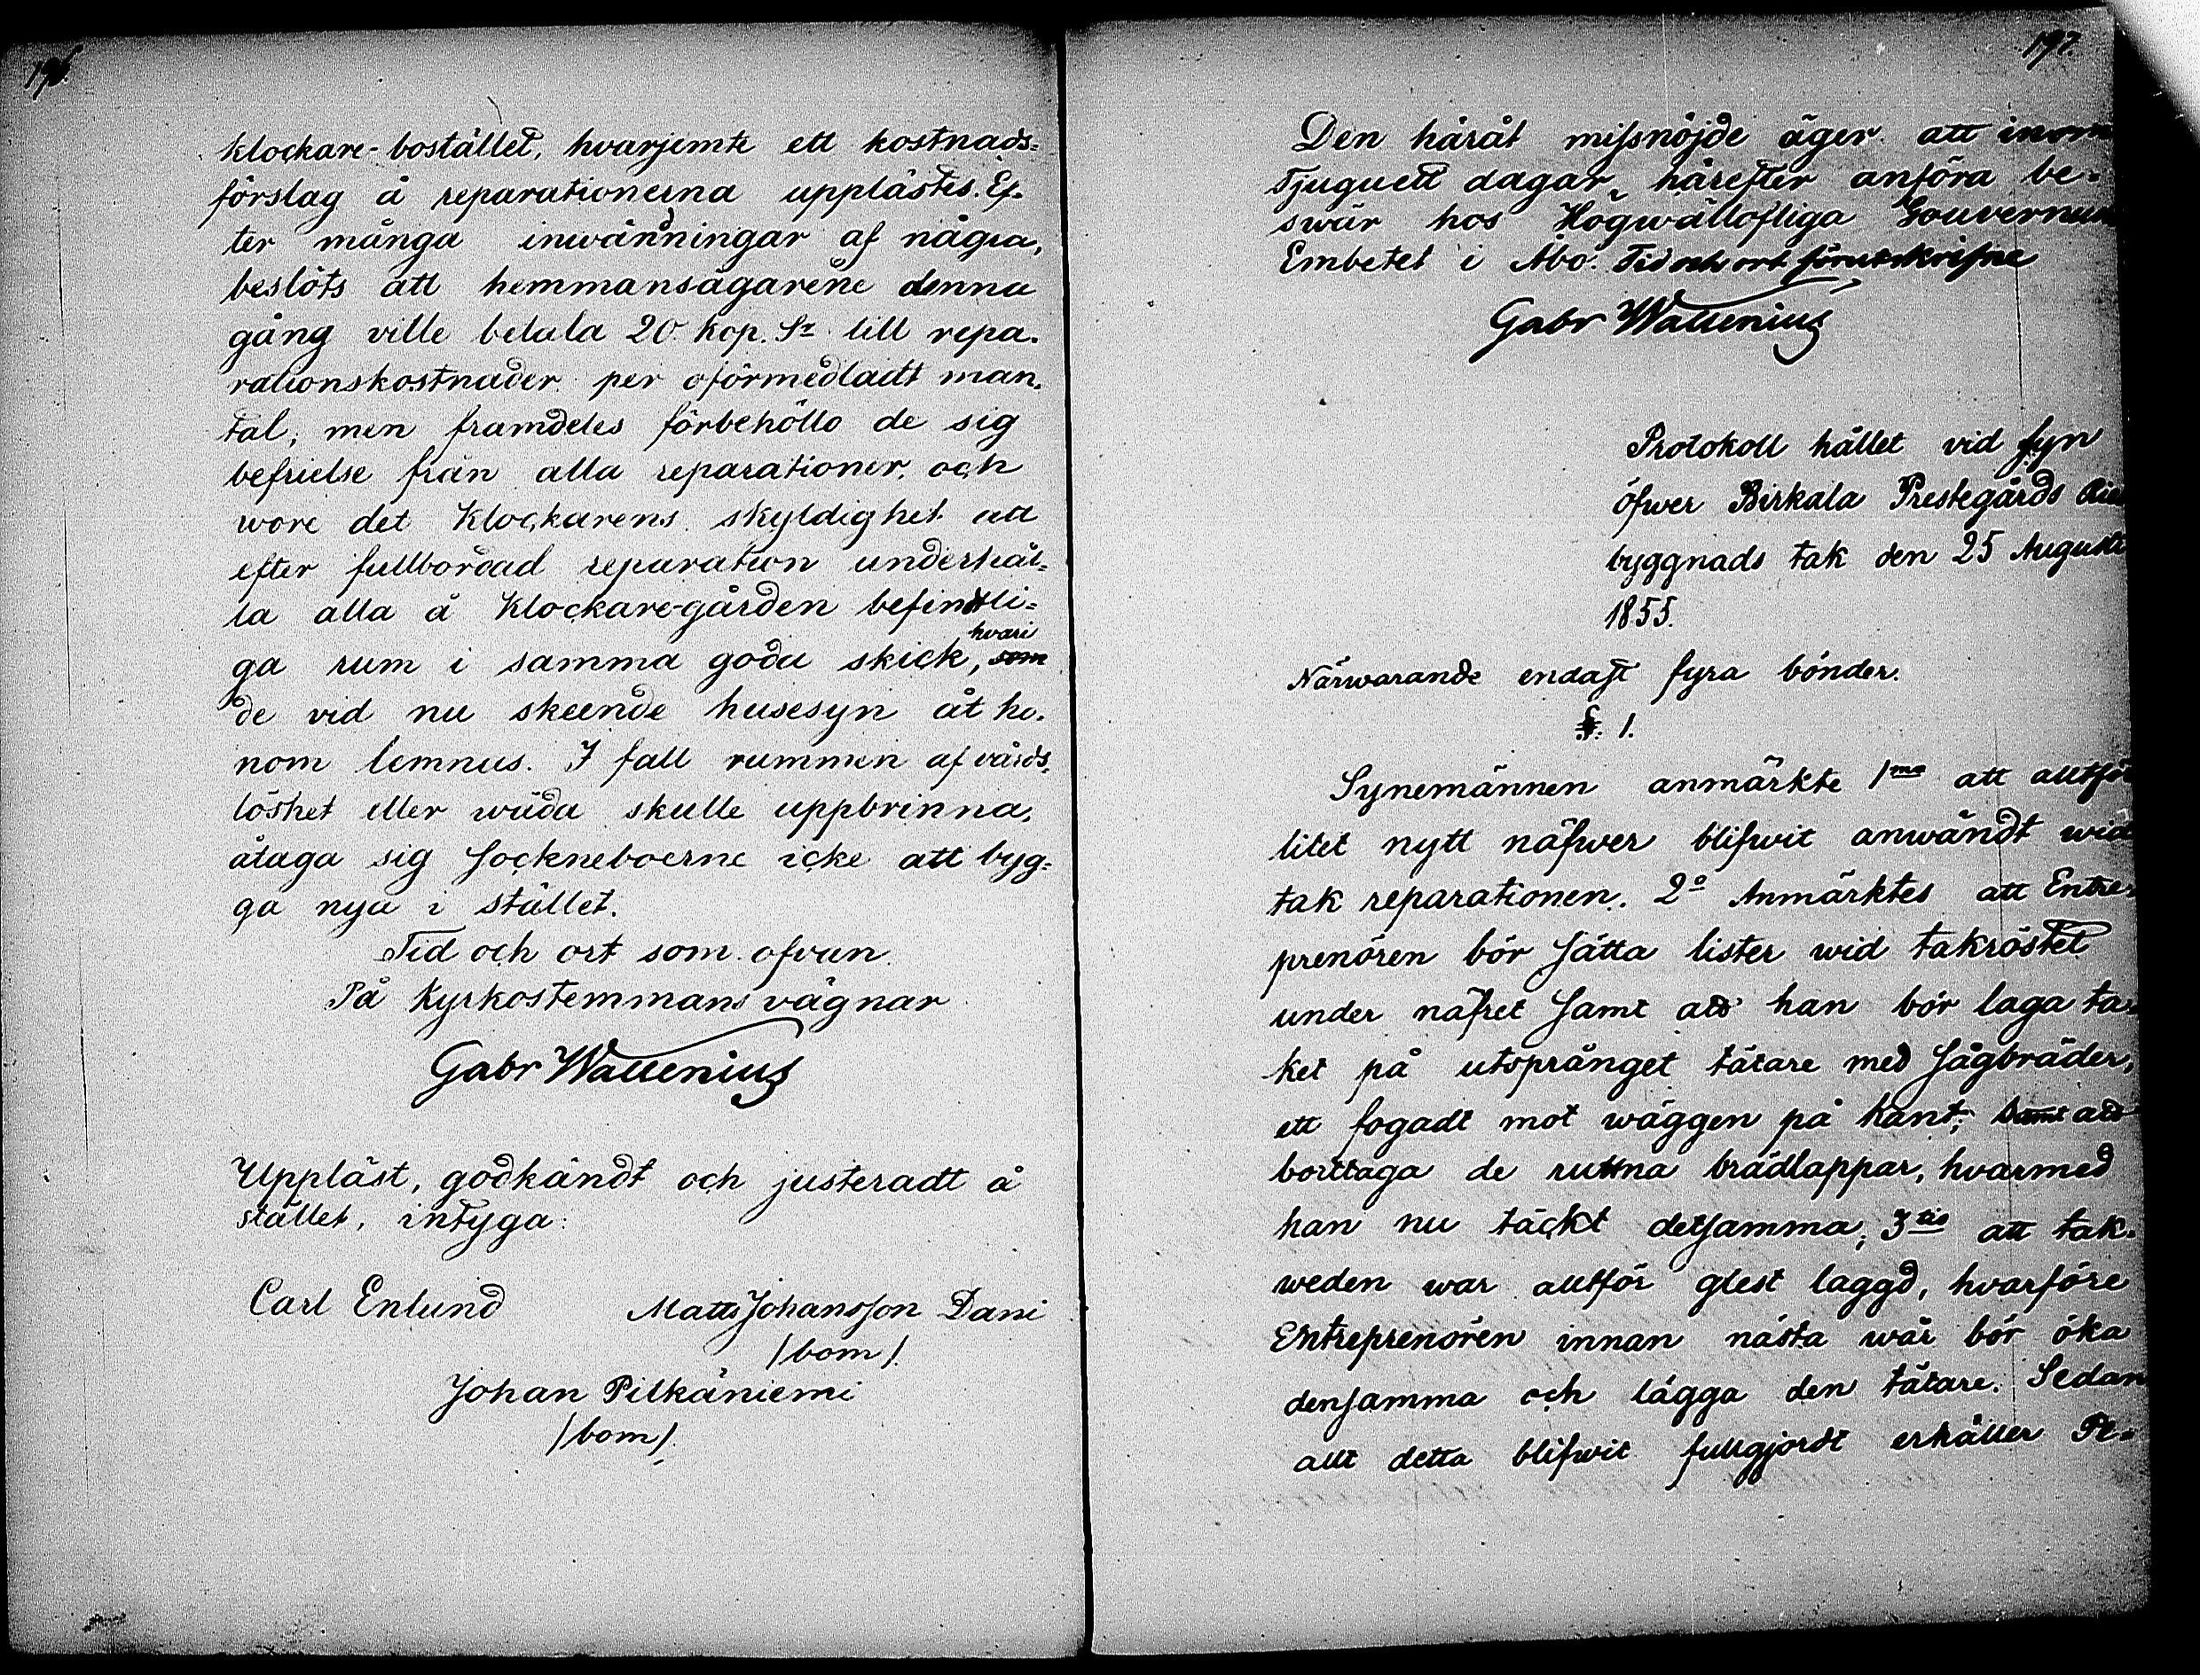 196.
klockare-bostället, hvarjemte ett kostnads=
förslag å reparationerna upplästes. Ef-
ter många inwändningar af några,
beslöts att hemmansägarene denna
gång ville betala 20 kop. Sr till repa-
rationskostnader per oförmedladt man-
tal; men framdeles förbehöllo de sig
befrielse från alla reparationer, och
wore det Klockarens skyldighet att
efter fullbordad reparation underhål-
la alla å Klockare-gården befintli=
hvari
ga rum i samma goda skick, som
de vid nu skeende husesyn åt ho-
nom lemnas. I fall rummen af vårds-
löshet eller wåda skulle uppbrinna,
åtaga sig Sockneboerne icke att byg=
ga nya i stället.
Tid och ort som ofvan.
På Kyrkostemmans vägnar
Gabr Wallenius
Uppläst, godkändt och justeradt å
stället, intyga:
Carl Enlund Matts Johansson Dani
/bom/.
Johan Pitkäniemi
/bom/.
197.
Den häråt missnöjde äger att inom
Tjuguett dagar härefter anföra be-
swär hos Högwällofliga Gouverneurs
Embetet i Åbo. Tid och ort förutskrifne
Gabr Wallenius
Protokoll hållet vid syn
öfwer Birkala Prestegårds
byggnads tak den 25 Augusti
1855.
Närwarande endast fyra bönder.
§. 1.
Synemännen anmärkte 1mo att alltför
litet nytt näfwer blifwit anwändt wid
tak reparationen. 2o Anmärktes att Entre-
prenören bör sätta lister wid takröstet
under näfret samt att han bör laga ta-
ket på utsprånget tätare med sågbräder,
ett fogadt mot wäggen på kant; samt att
borttaga de ruttna brädlappar, hvarmed
han nu täckt detsamma; 3tio att tak-
weden war alltför glest laggd, hvarföre
Entreprenören innan nästa wår bör öka
densamma och lägga den tätare. Sedan
allt detta blifwit fullgjordt erhåller Pt-